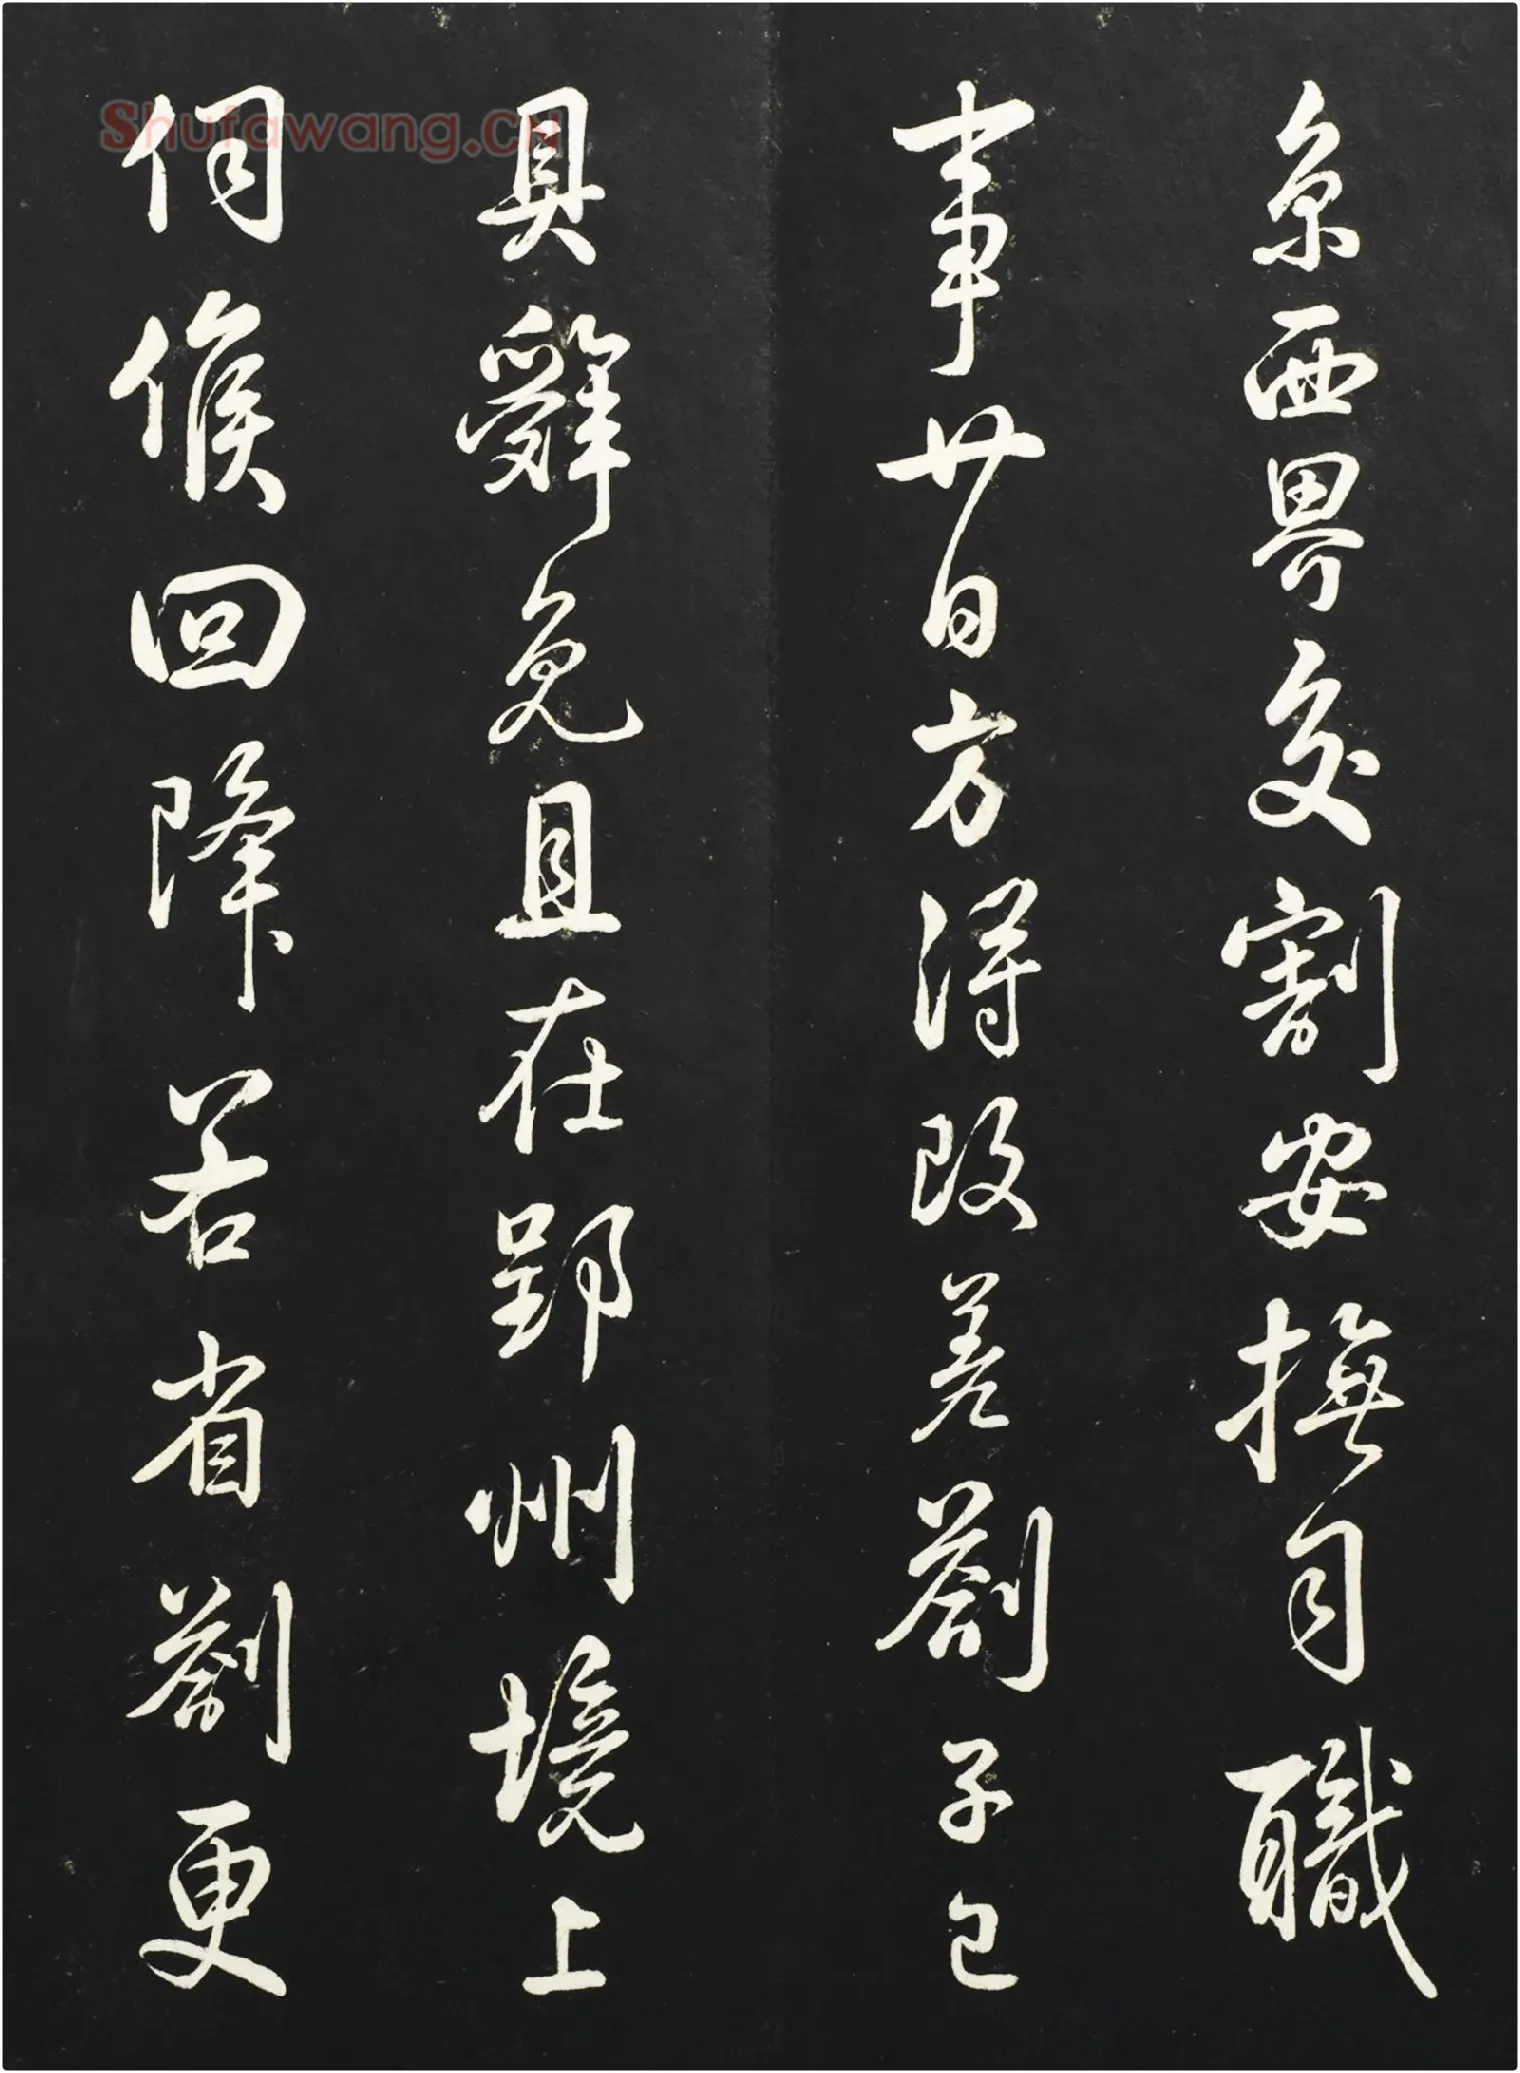 京西界交割安撫司職
事廿日方得改差劄子已
具辭免且在郢州境上
伺候回降若省劄更
Shufawang.cn